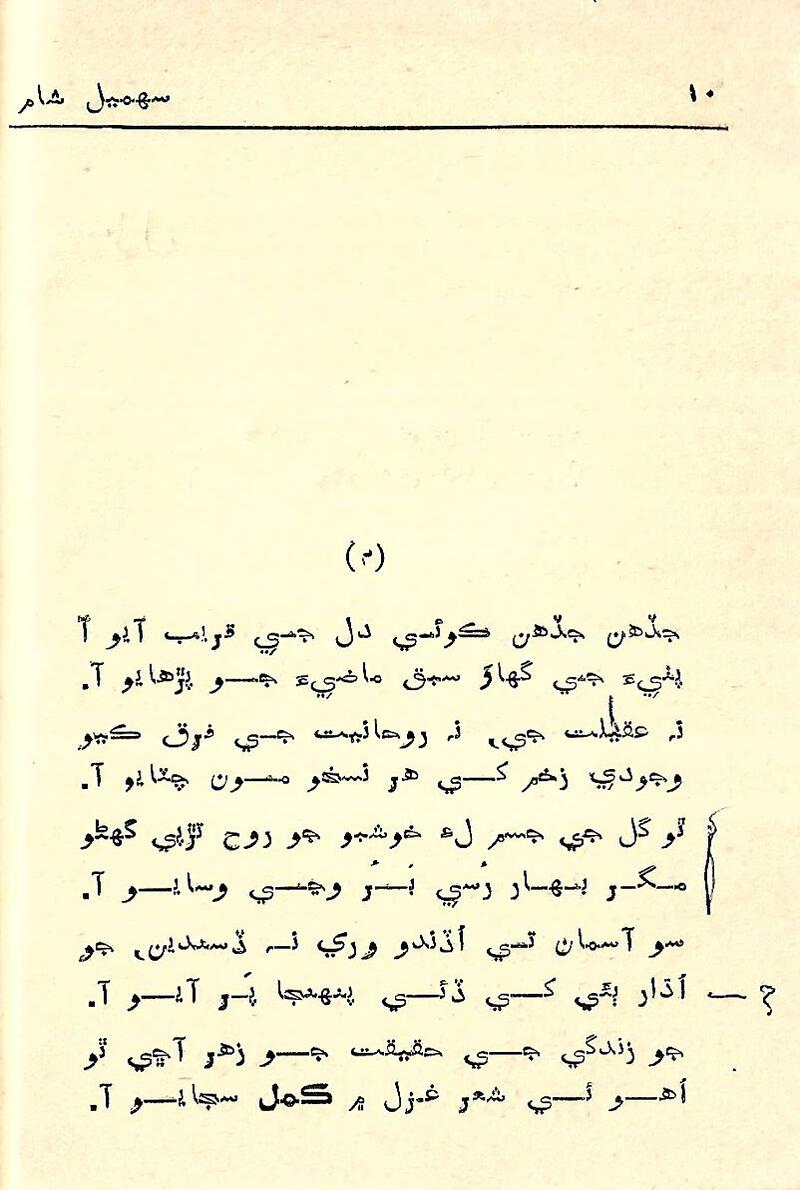 ١٠ سهميل شام
(٢)
جڏهن جڏهن ڪوئي دل جي قريب آيو آ
پٺيءَ جي گهاوَ سبق ماضيءَ جو پڙهايو آ.
نہ عقليت جي، نہ روحانيت جي فرق ڪيو
وجودي زخم کي هر نسخو مون چٽايو آ.
ٿو گل جي جسم لءِ خوشبو جو روح تڙپي گهڻو
مگر بهار رُسي بَرُ وڃي وسايو آ.
سو آسمان تي اُڏندو وري نہ ڏسندين، جو
اُڌار ٻئي کي ڏئي پنهنجا پَر آيو آ.
جو زندگي جي حقيقت جو زهر آڇي ٿو
اُهو ئي شعر غزل ۾ ڪمل سجايو آ.